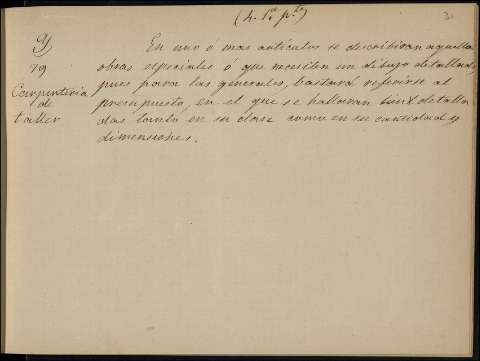 (4. 1ª pte)
3
Y
19
Carpintería
de
taller
En uno o mas articulos se describiran aquellas
obras especiales ó que necesiten un dibujo detallado,
pues para las generales, bastará referirse al
presupuesto, en el que se hallaran detalla
das tanto en su clase como en su cantidad y
dimensiones.